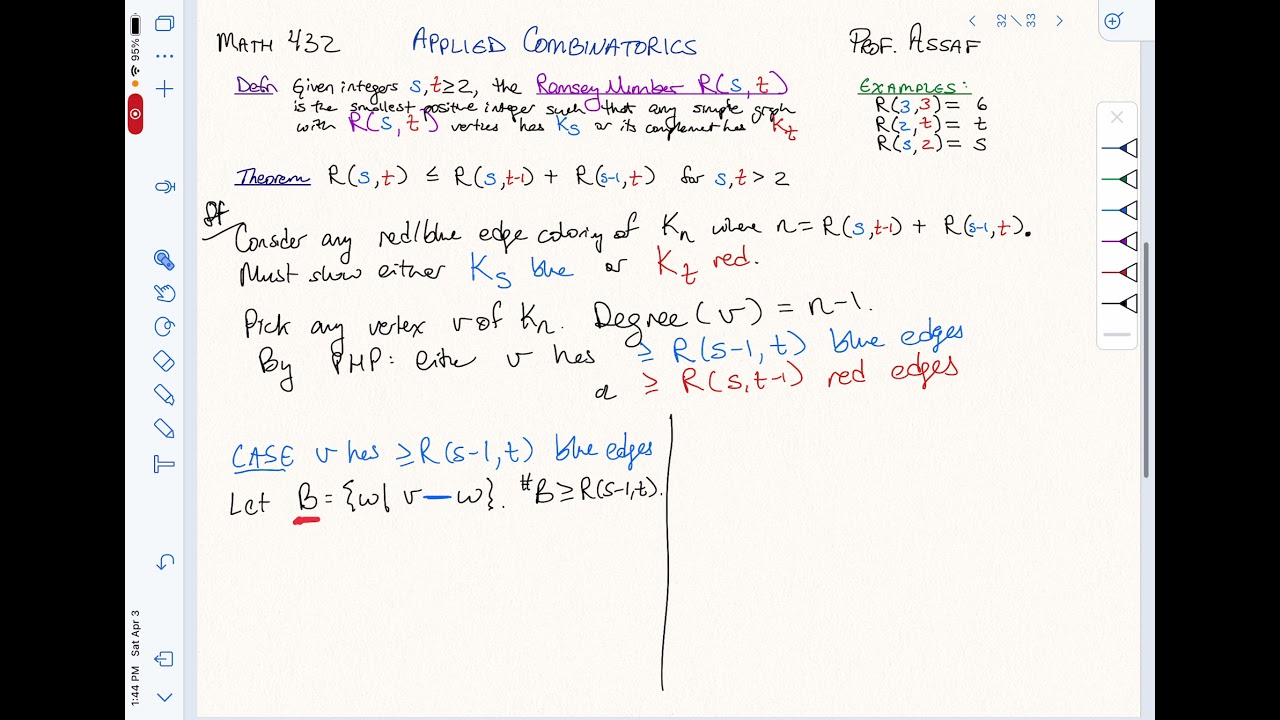 95%
32 \ 33
MATH 432 APPLIED COMBINATORICS PROF. ASSAF
Defn Given integers s,t≥2, the Ramsey Number R(s,t)
is the smallest positive integer such that any simple graph
with R(s,t) verties has Ks or its complemet has Kt
EXAMPLES:
R(3,3)= 6
R(2,t)= t
R(s,2)= s
Theorem R(s,t) ≤ R(s,t-1) + R(s-1,t) for s,t > 2
Pf
Consider any red/blue edge coloring of Kn where n = R(s,t-1) + R(s-1,t).
Must show either Ks blue or Kt red.
Pick any vertex v of Kn. Degree(v) = n-1.
By PHP: either v has ≥ R(s-1,t) blue edges
or ≥ R(s,t-1) red edges
CASE v has ≥R(s-1,t) blue edges
Let B = {w| v—w}. #B≥R(s-1,t).
1:44 PM Sat Apr 3